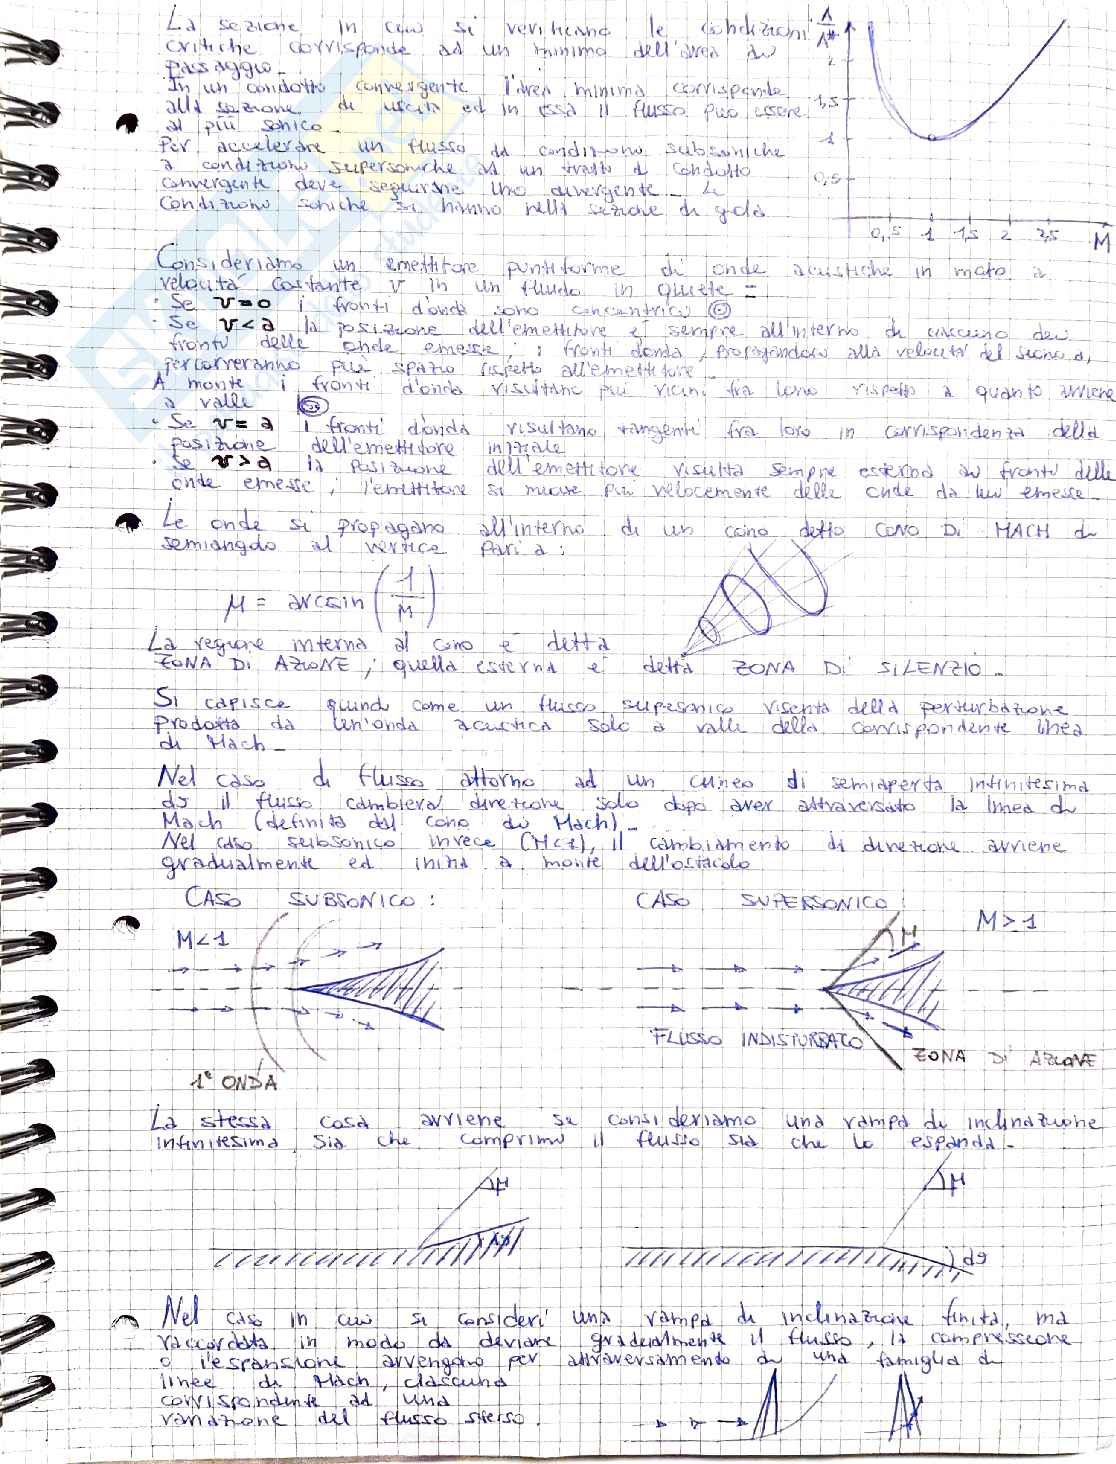 La sezione in cui si verificano le condizioni
critiche corrisponde ad un minimo dell'area di
passaggio.
In un condotto convergente l'area minima corrisponde
alla sezione di uscita ed in essa il flusso può essere
al più sonico.
Per accelerare un flusso da condizioni subsoniche
a condizioni supersoniche ad un tratto di condotto
convergente deve seguirne uno divergente. Le
condizioni soniche si hanno nella sezione di gola
A/A*
2
1,5
1
0,5
0,5 1 1,5 2 2,5 M
Consideriamo un emettitore puntiforme di onde acustiche in moto a
velocità costante v in un fluido in quiete:
· Se v=0 i fronti d'onda sono concentrici
· Se v<a la posizione dell'emettitore è sempre all'interno di ciascuno dei
fronti delle onde emesse; i fronti d'onda, propagandosi alla velocità del suono a,
percorreranno più spazio rispetto all'emettitore.
A monte i fronti d'onda risultano più vicini fra loro rispetto a quanto avviene
a valle
· Se v=a i fronti d'onda risultano tangenti fra loro in corrispondenza della
posizione dell'emettitore iniziale
· Se v>a la posizione dell'emettitore risulta sempre esterna ai fronti delle
onde emesse; l'emettitore si muove più velocemente delle onde da lui emesse.
Le onde si propagano all'interno di un cono detto CONO DI MACH di
semiangolo al vertice pari a:
μ = arcsin(1/M)
La regione interna al cono è detta
ZONA DI AZIONE; quella esterna è detta ZONA DI SILENZIO.
Si capisce quindi come un flusso supersonico risenta della perturbazione
prodotta da un'onda acustica solo a valle della corrispondente linea
di Mach.
Nel caso di flusso attorno ad un cuneo di semiaperta infinitesima
dϑ il flusso cambierà direzione solo dopo aver attraversato la linea di
Mach (definita dal cono di Mach).
Nel caso subsonico invece (M<1), il cambiamento di direzione avviene
gradualmente ed inizia a monte dell'ostacolo
CASO SUBSONICO:
M<1
1ª ONDA
CASO SUPERSONICO:
M>1
μ
FLUSSO INDISTURBATO
ZONA DI AZIONE
La stessa cosa avviene se consideriamo una rampa di inclinazione
infinitesima, sia che comprima il flusso sia che lo espanda.
μ
μ
dϑ
Nel caso in cui si consideri una rampa di inclinazione finita, ma
raccordata in modo da deviare gradualmente il flusso, la compressione
o l'espansione avvengono per attraversamento di una famiglia di
linee di Mach, ciascuna
corrispondente ad una
variazione del flusso stesso.